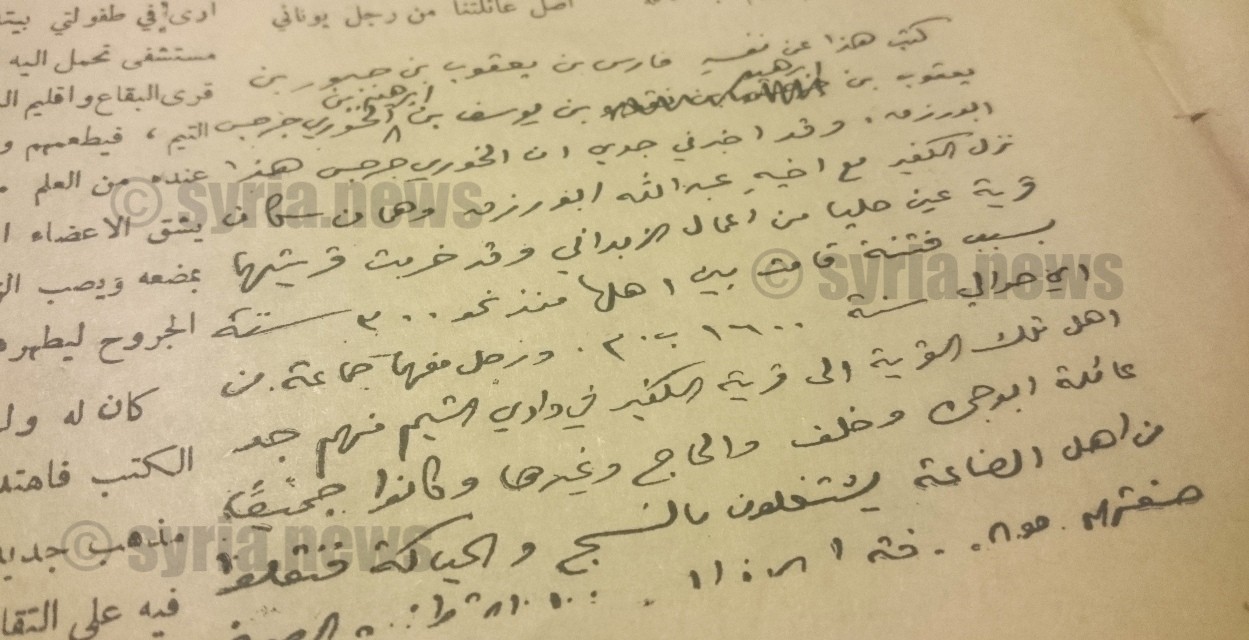 اصل عائلتنا من رجل يوناني
كتب هذا عن نفسه فارس بن يعقوب بن جبور بن
يعقوب بن ابرهيم بن يوسف بن ابرهيم بن الخوري جرجس
ابورزق. وقد اخبرني جدي ان الخوري جرجس هذا
نزل الكفير مع اخيه عبدالله ابورزق وهما من سكان
قرية عين حليا من اعمال الزبداني وقد خربت قريتها
بسبب فتنة قامت بين اهلها منذ نحو ٣٠٠ سنة
اي حوالي سنة ١٦٠٠ ب.م. ورحل منها جماعة من
اهل تلك القرية الى قرية الكفير في وادي التيم منهم جد
عائلة ابوجمرة وخلف والحاج وغيرها وكانوا جميعًا
من اهل الصناعة يشتغلون بالنسج والحياكة فنقلوا
صنعتهم
ارى في طفولتي
مستشفى تحمل اليه
قرى البقاع واقليم
التيم ، فيطعمهم
عنده من العلم
يشق الاعضاء
بمضعه ويصب
الجروح ليطهر
كان له
الكتب
مذهب
فيه على
© syria.news
© syria.news
© syria.news